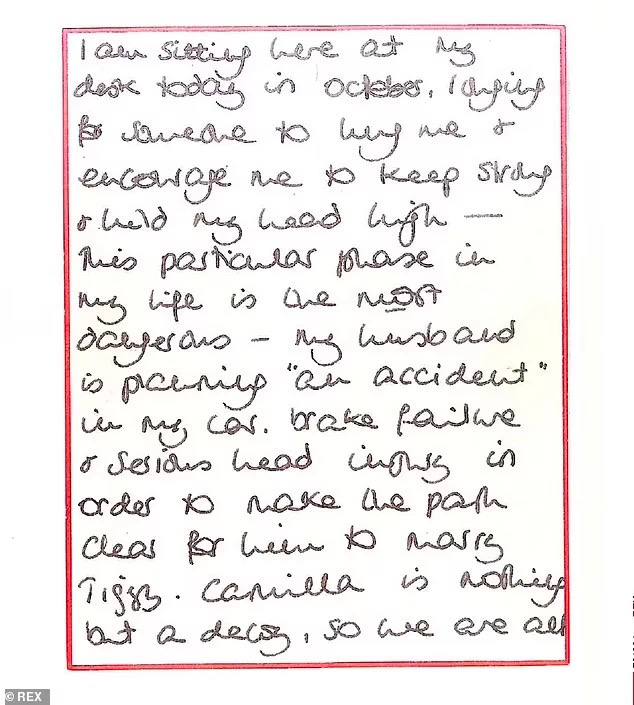 I am sitting here at my
desk today in October, longing
for someone to hug me &
encourage me to keep strong
& hold my head high —
This particular phase in
my life is the most
dangerous – my husband
is planning "an accident"
in my car. brake failure
& serious head injury in
order to make the path
clear for him to marry
Tiggy. Camilla is nothing
but a decoy, so we are all
© REX